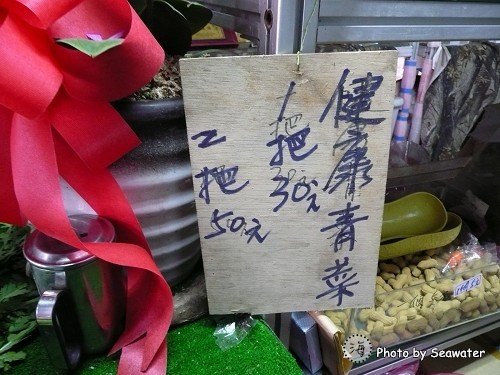 健康青菜
1把30元
2把50元
Photo by Seawater